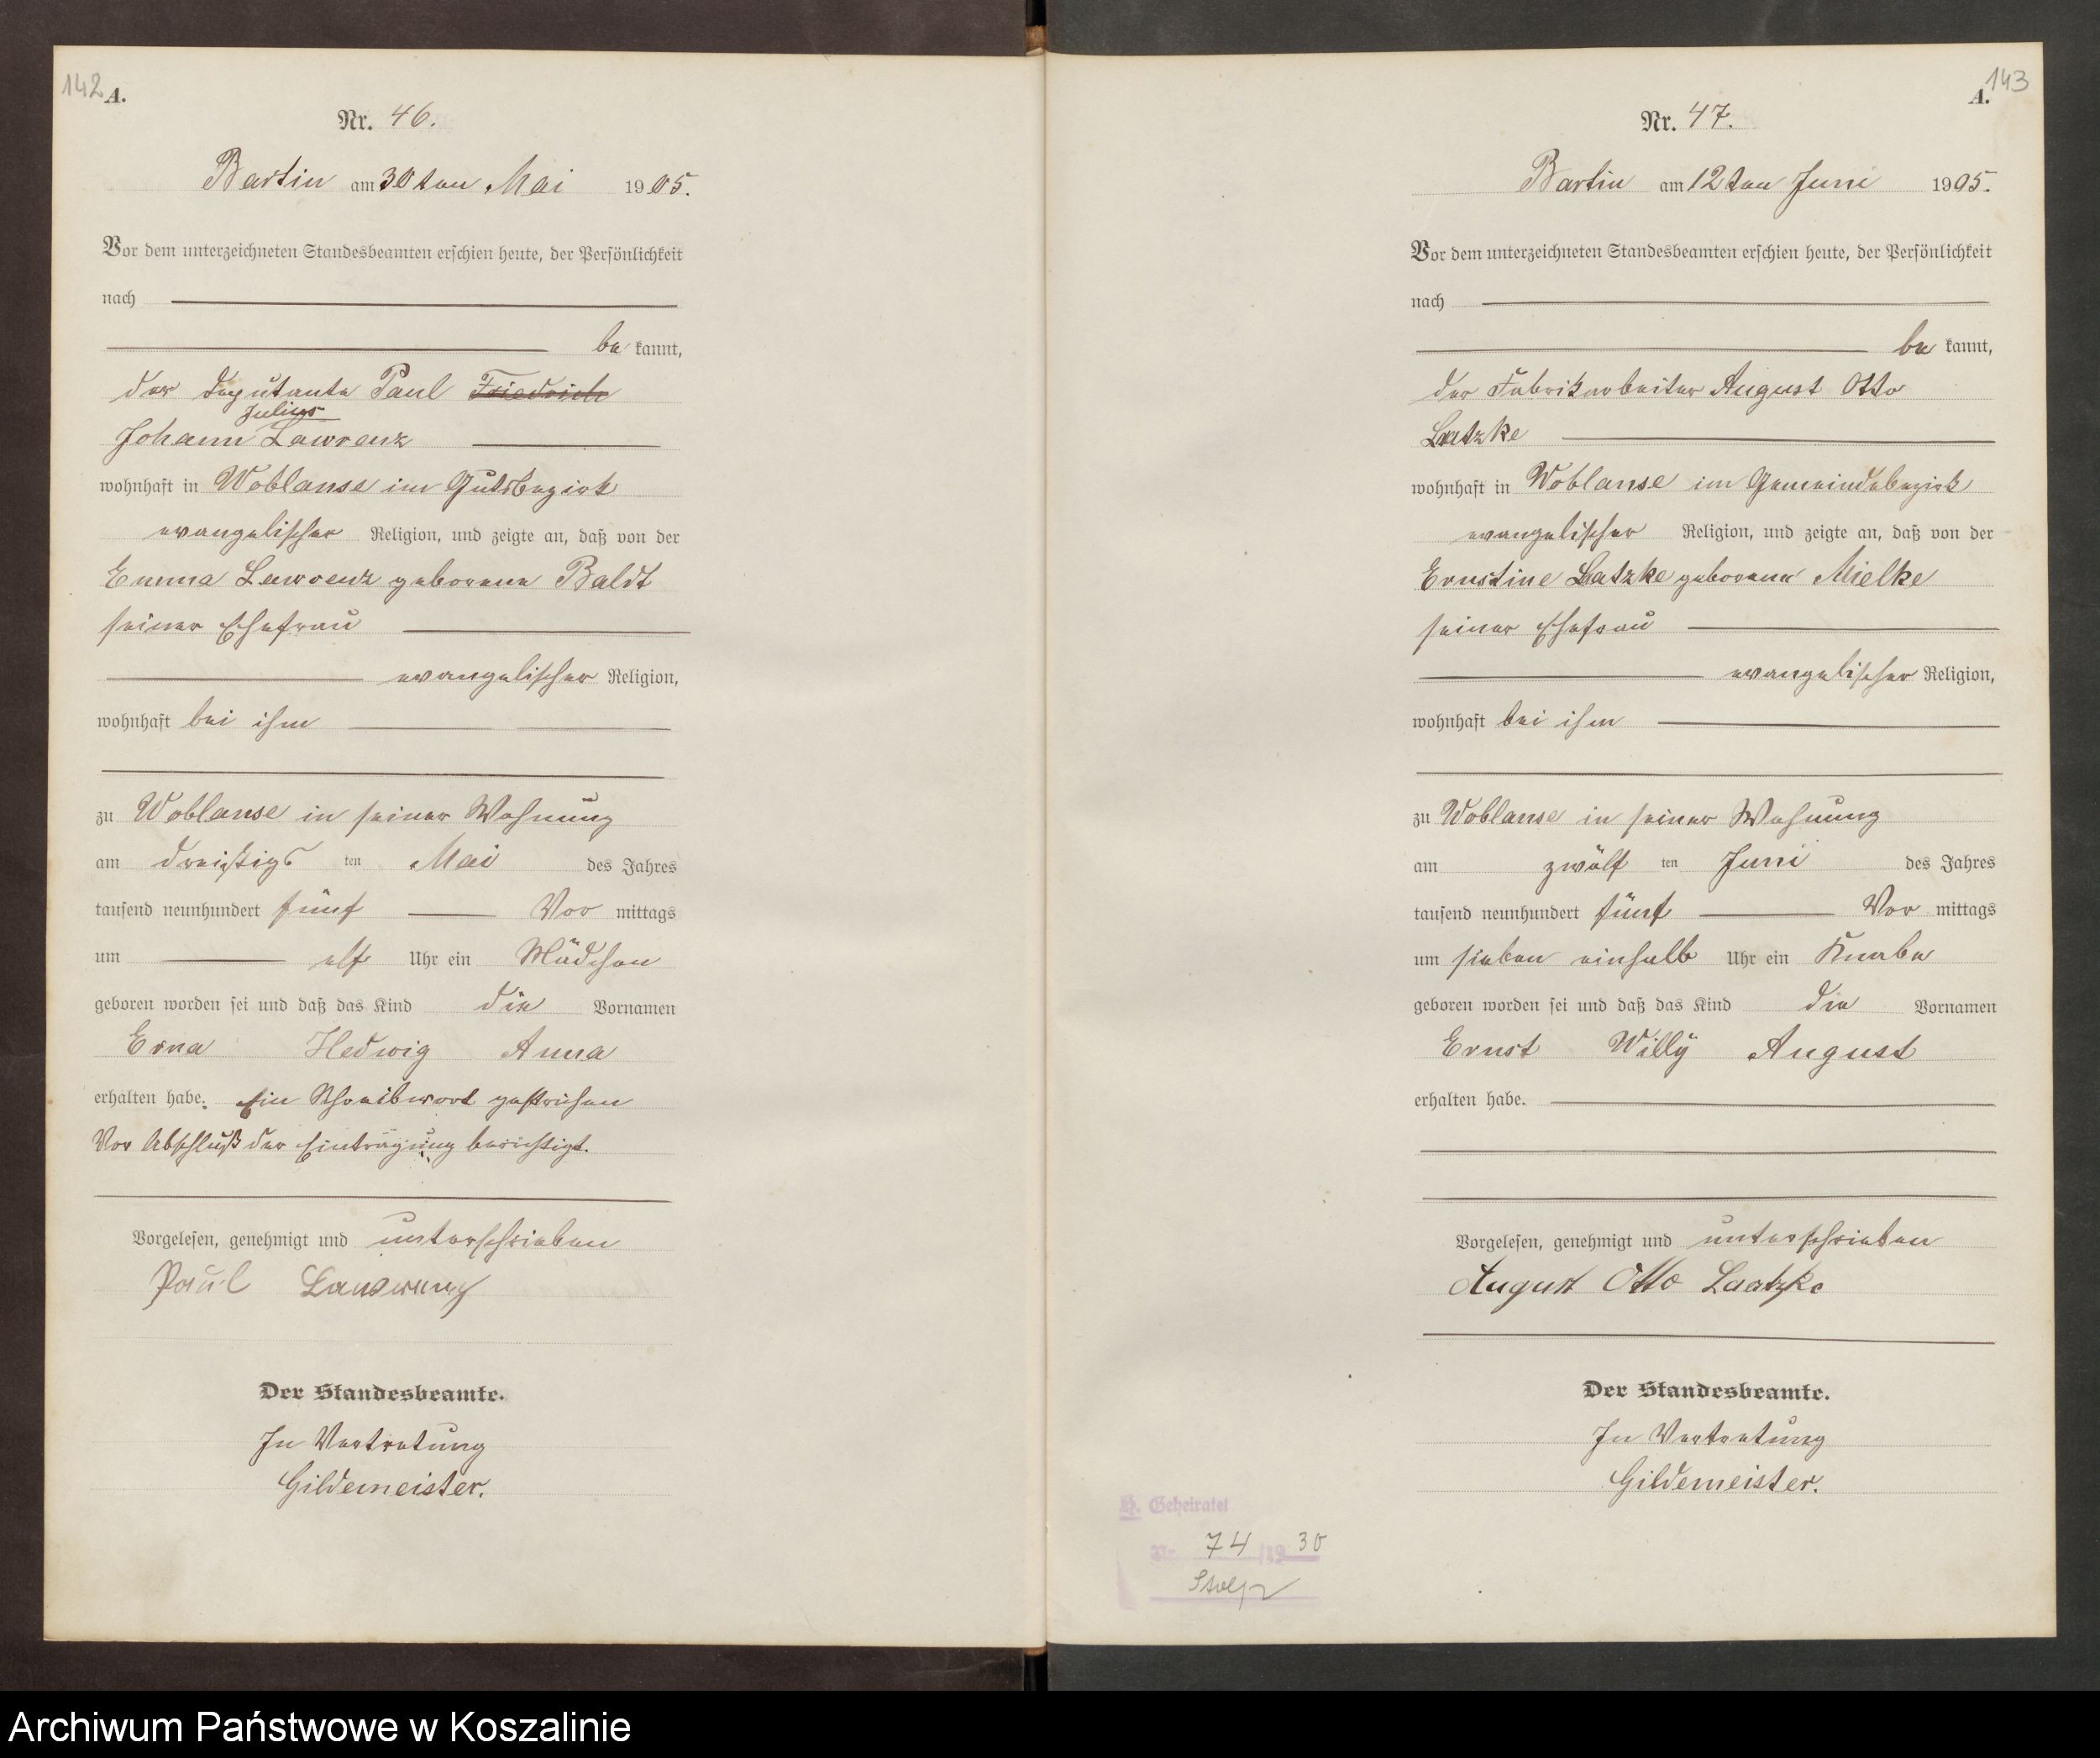 142 A.
Nr. 46.
Bartin am 30ten Mai 1905.
Vor dem unterzeichneten Standesbeamten erschien heute, der Persönlichkeit
nach
be kannt,
der Deputante Paul Friedrich
Julius
Johann Lawrenz
wohnhaft in Woblanse im Gutsbezirk
evangelischer Religion, und zeigte an, daß von der
Emma Lawrenz geborene Baldt
seiner Ehefrau
evangelischer Religion,
wohnhaft bei ihm
zu Woblanse in seiner Wohnung
am dreißigs ten Mai des Jahres
tausend neunhundert fünf Vor mittags
um elf Uhr ein Mädchen
geboren worden sei und daß das Kind die Vornamen
Erna Hedwig Anna
erhalten habe. Ein Schreibwort gestrichen
Vor Abschluß der Eintragung berichtigt.
Vorgelesen, genehmigt und unterschrieben
Paul
Der Standesbeamte.
In Vertretung
Gildemeister.
143
A.
Nr. 47.
Bartin am 12ten Juni 1905.
Vor dem unterzeichneten Standesbeamten erschien heute, der Persönlichkeit
nach
be kannt,
der Fabrikarbeiter August Otto
Laatzke
wohnhaft in Woblanse im Gemeindebezirk
evangelischer Religion, und zeigte an, daß von der
Ernstine Laatzke geborene Mielke
seiner Ehefrau
evangelischer Religion,
wohnhaft bei ihm
zu Woblanse in seiner Wohnung
am zwölf ten Juni des Jahres
tausend neunhundert fünf Vor mittags
um sieben einhalb Uhr ein Knabe
geboren worden sei und daß das Kind die Vornamen
Ernst Willy August
erhalten habe.
Vorgelesen, genehmigt und unterschrieben
August Otto Laatzke
Der Standesbeamte.
In Vertretung
Gildemeister.
Geheiratet
Nr. 74 /19 30
Stolp
Archiwum Państwowe w Koszalinie